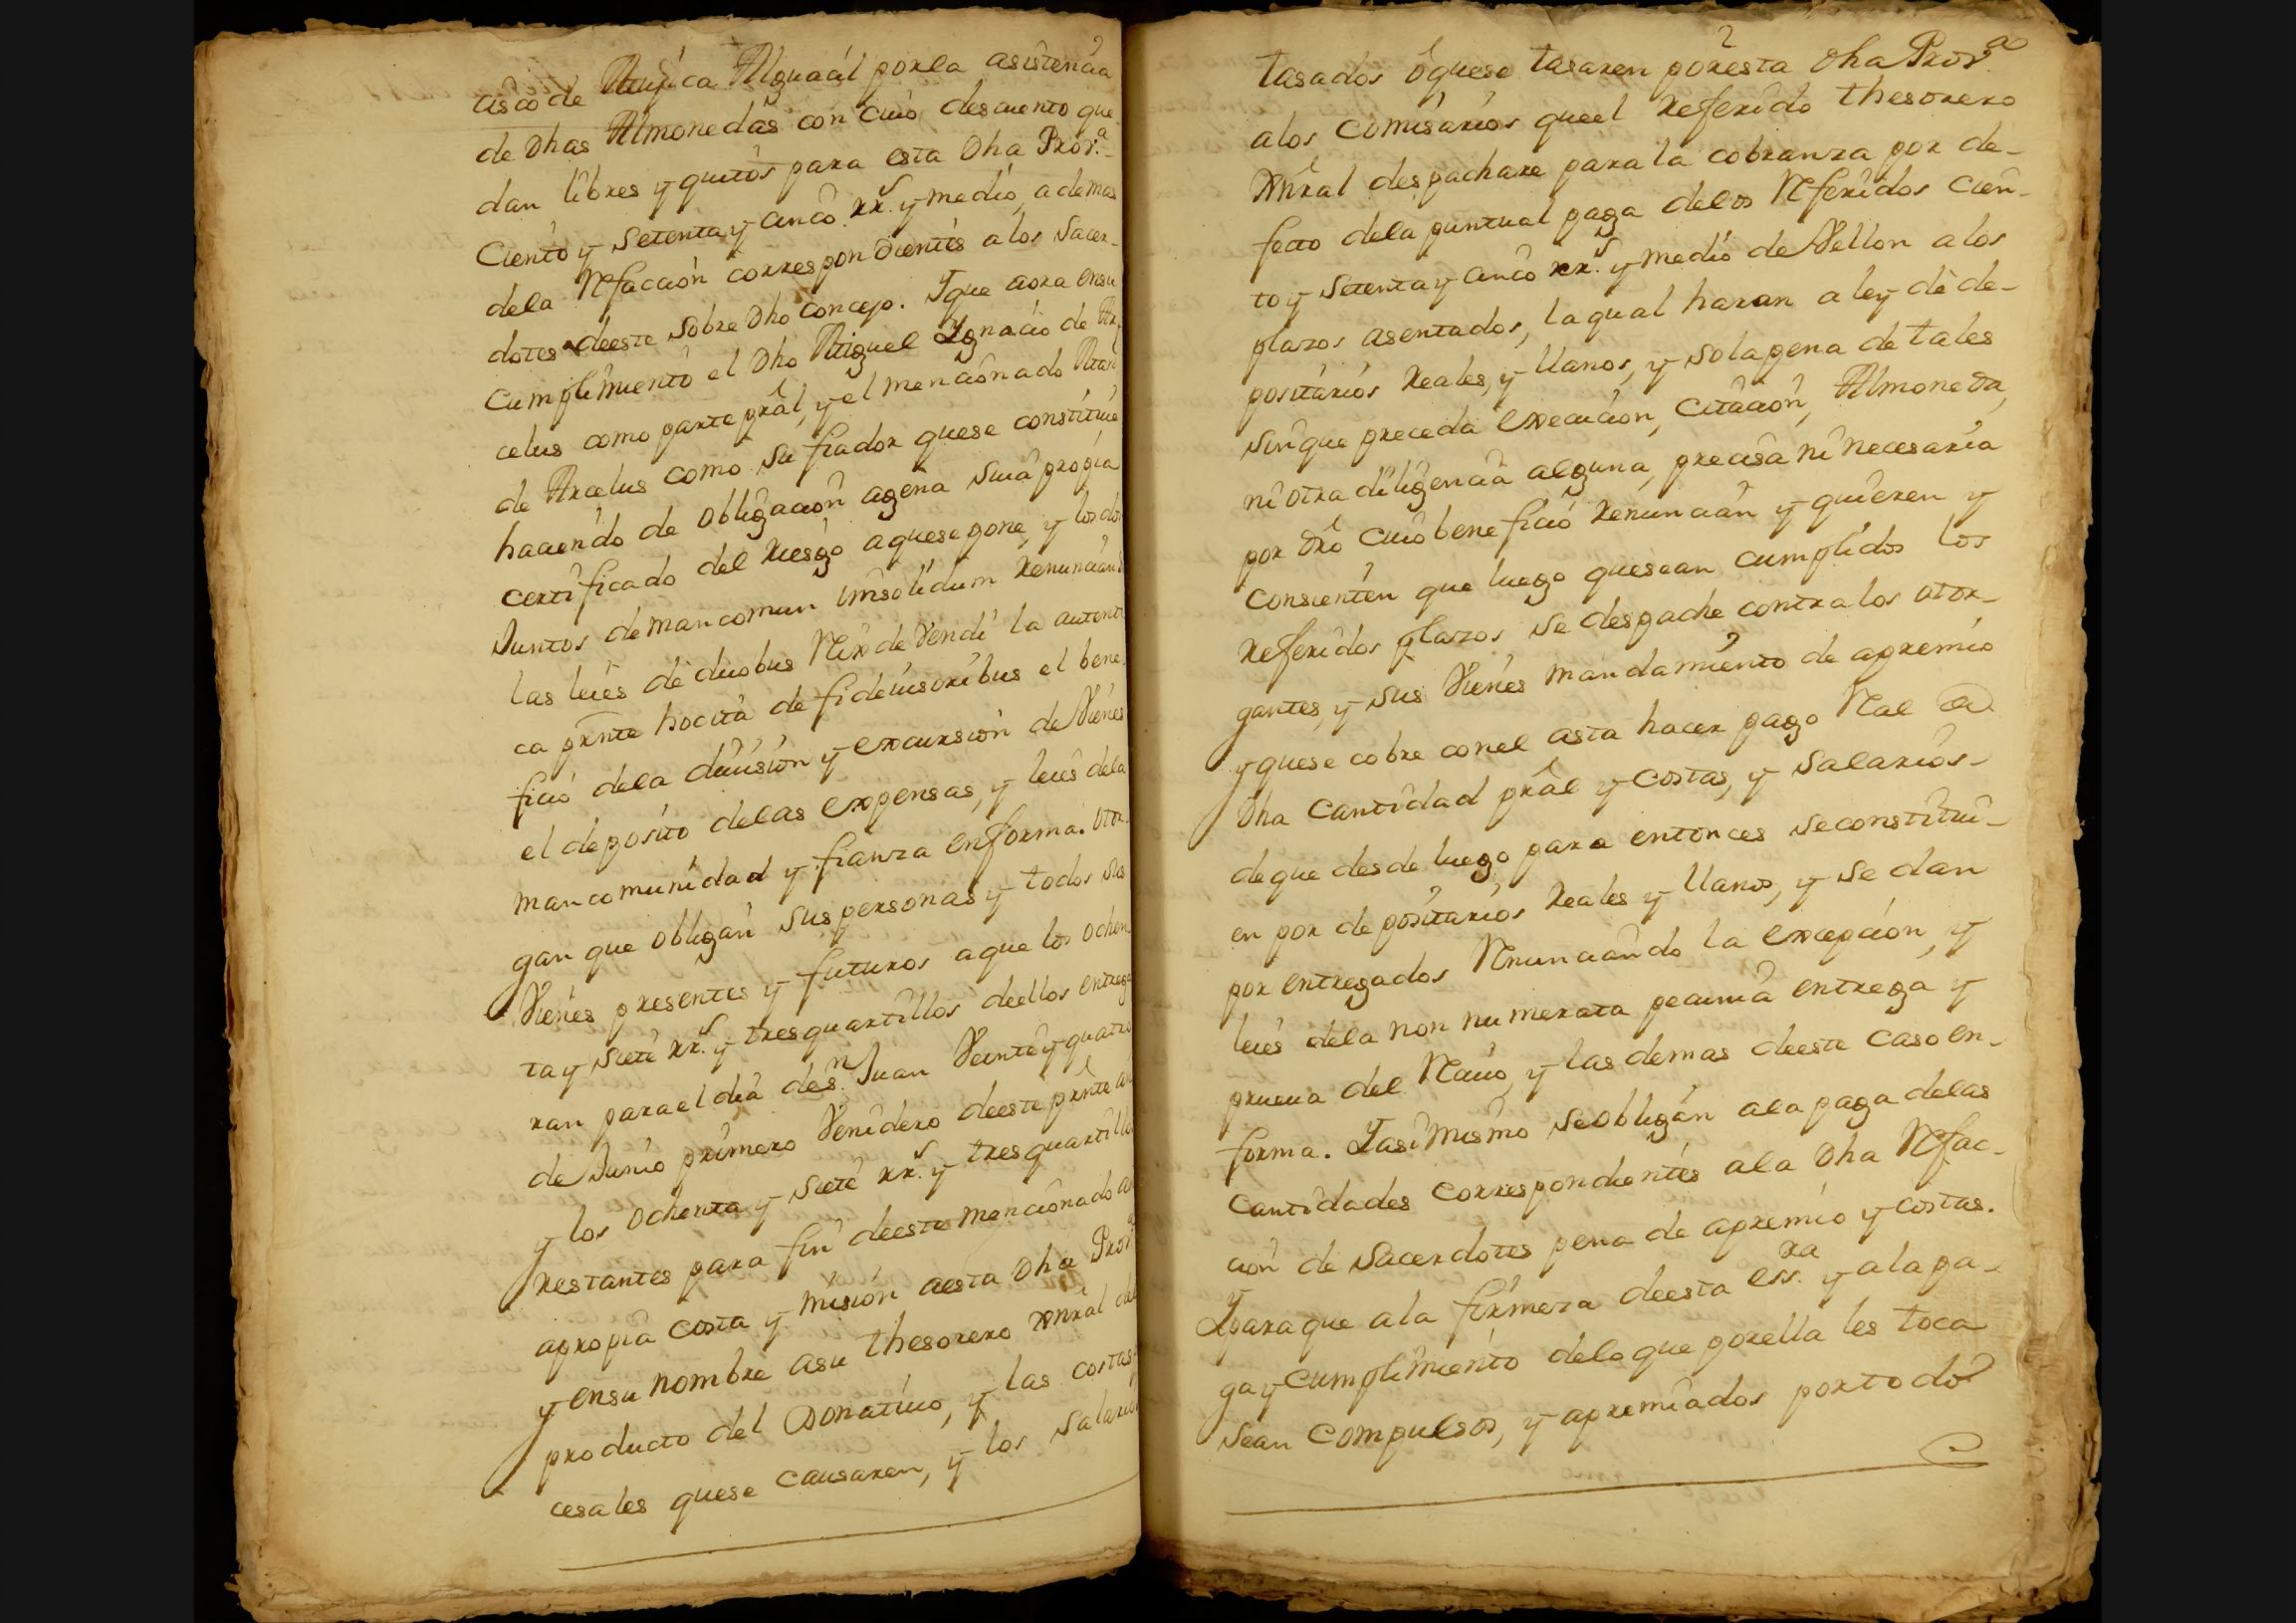 cisco de Mugica Alguacil porla asistencia
de Dhas Almonedas con cuio descuento que
dan libres y quitos para esta Dha Prov.ª
Ciento y Setenta y cinco rr.s y medio, ademas
dela Refaccion correspondientes alos Sacer-
dotes deeste sobre Dho Concejo. Y que aora ensu
Cumplimiento el Dho Miguel Ygnacio de Ar
celus como parte prâl, y el mencionado Mar
de Arcelus como su fiador quese constituie
haciendo de obligacion agena suia propia
certificado del riesgo aquese pone, y los dos
Juntos de mancomun imsolidum renuncian
las leies de duobus Rex de Vendi la autenti
ca prnte hocita de fideiusoribus el bene
ficio dela diuision y excursion de Vienes
el deposito delas expensas, y leies dela
mancomunidad y fianza enforma. Otor
gan que obligan sus personas y todos sus
Vienes presentes y futuros aque los ochen
ta y siete rr.s y tres quartillos deellos entrega
ran para el dia de s.n Juan Veinte y quatro
de Junio primero Venidero deeste prnte a
y los ochenta y siete rr.s y tres quartillo
restantes para fin deeste mencionado a
apropia costa y mision aesta Dha Prov.ª
y ensu nombre asu thesorero xnral del
producto del Donatiuo, y las costas
cesales quese causaren, y los salarios
2
tasados ô quese tasaren poresta Dha Prov.ª
alos Comisarios queel referido thesorero
Xnral despachare para la cobranza por de-
fecto dela puntual paga delos Referidos Cien-
to y setenta y cinco rr.s y medio de Vellon alos
plazos asentados, la qual haran a ley de de-
positarios reales, y llanos, y sola pena de tales
sinque preceda execucion, citacion, Almoneda,
ni otra diligencia alguna, precisa ni necesaria
por dro cuio beneficio renuncian y quieren y
consienten que luego quesean cumplidos los
referidos plazos se despache contra los otor-
gantes, y sus Vienes mandamiento de apremio
y quese cobre conel asta hacer pago Real @
Dha Cantidad prâl y costas, y salarios-
de que desde luego para entonces seconstitui-
en por depositarios reales y llanos, y se dan
por entregados Renunciando la excepcion, y
leies dela non numerata pecunia entrega y
prueua del Reciuo, y las demas deeste caso en-
forma. Yasimismo seobligan ala paga delas
Cantidades correspondientes ala Dha Refac-
cion de Sacerdotes pena de apremio y costas.
Yparaque ala firmeza deesta ess.ra y ala pa-
ga y cumplimiento delo que porella les toca
sean compulsos, y apremiados portodo